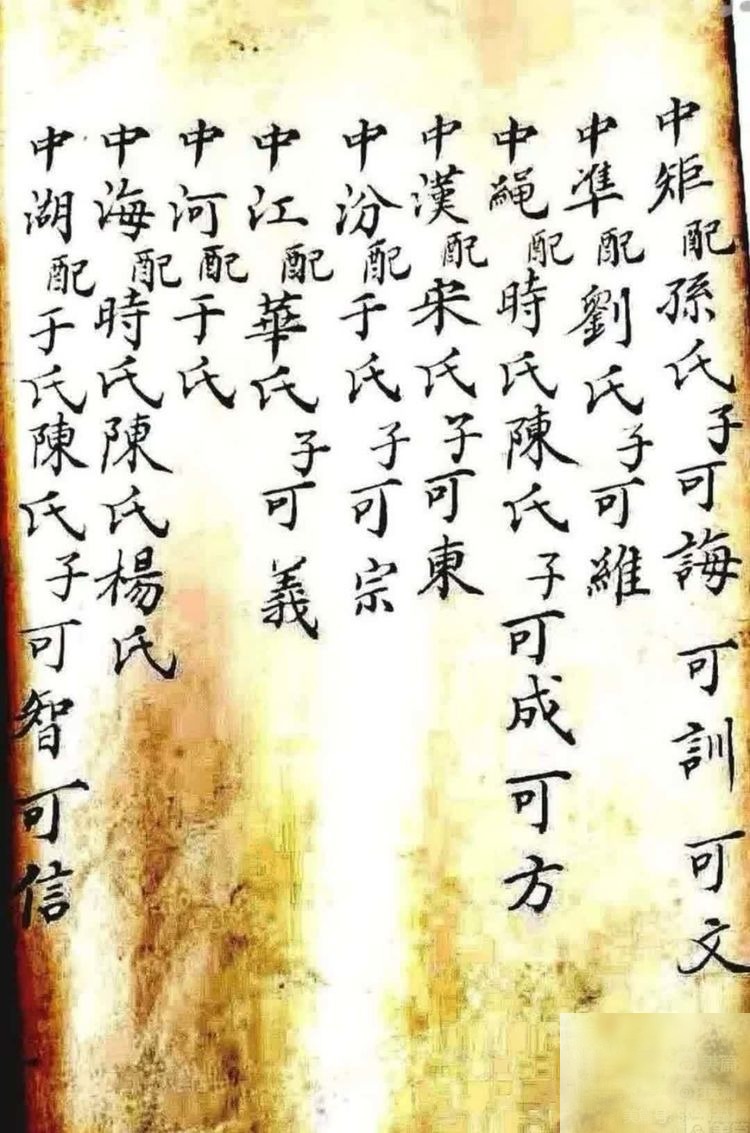 中矩配孫氏子可誨可訓可文
中準配劉氏子可維
中繩配時氏陳氏子可成可方
中漢配宋氏子可東
中汾配于氏子可宗
中江配華氏子可義
中河配于氏
中海配時氏陳氏楊氏
中湖配于氏陳氏子可智可信